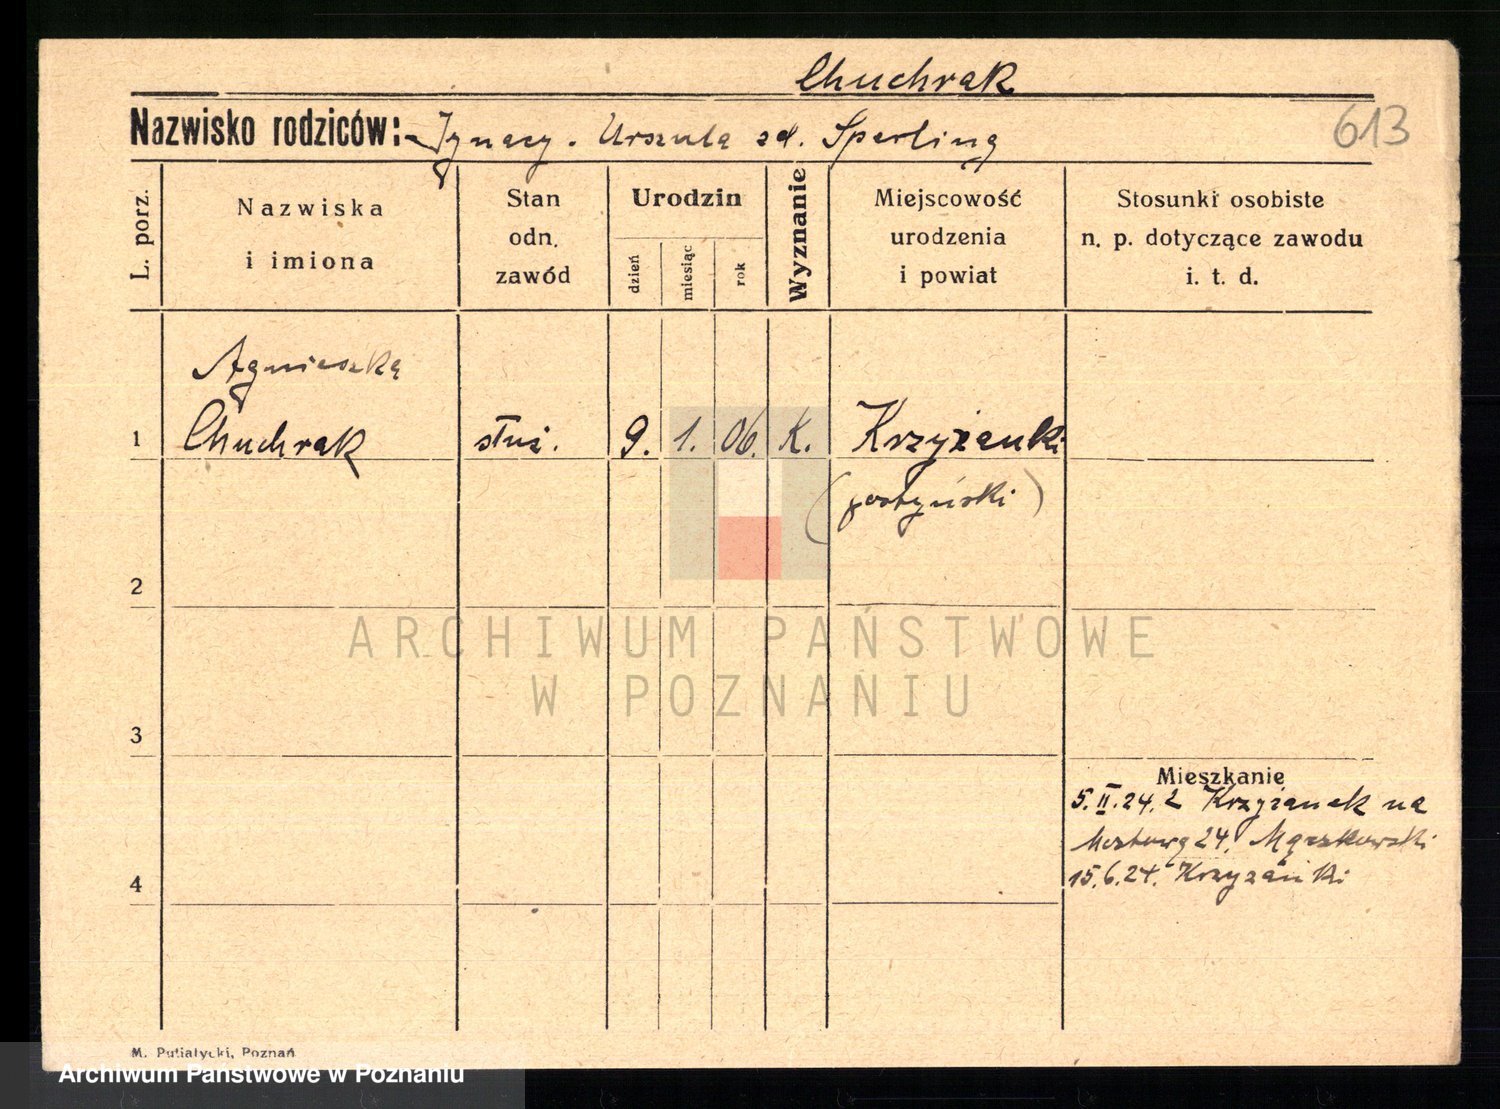 Chuchrak
Nazwisko rodziców: Ignacy. Urszula zd. Sperling
613
L. porz.
Nazwiska
i imiona
Stan
odn.
zawód
Urodzin
dzień
miesiąc
rok
Wyznanie
Miejscowość
urodzenia
i powiat
Stosunki osobiste
n. p. dotyczące zawodu
i. t. d.
Agnieszka
1 Chuchrak służ. 9. 1. 06. K. Krzyżanki
(gostyński)
2
ARCHIWUM PAŃSTWOWE
W POZNANIU
3
Mieszkanie
5.II.24. z Krzyżanek na
24. Mączkowski
4
15.6.24. Krzyżanki
M. Putiatycki, Poznań
Archiwum Państwowe w Poznaniu